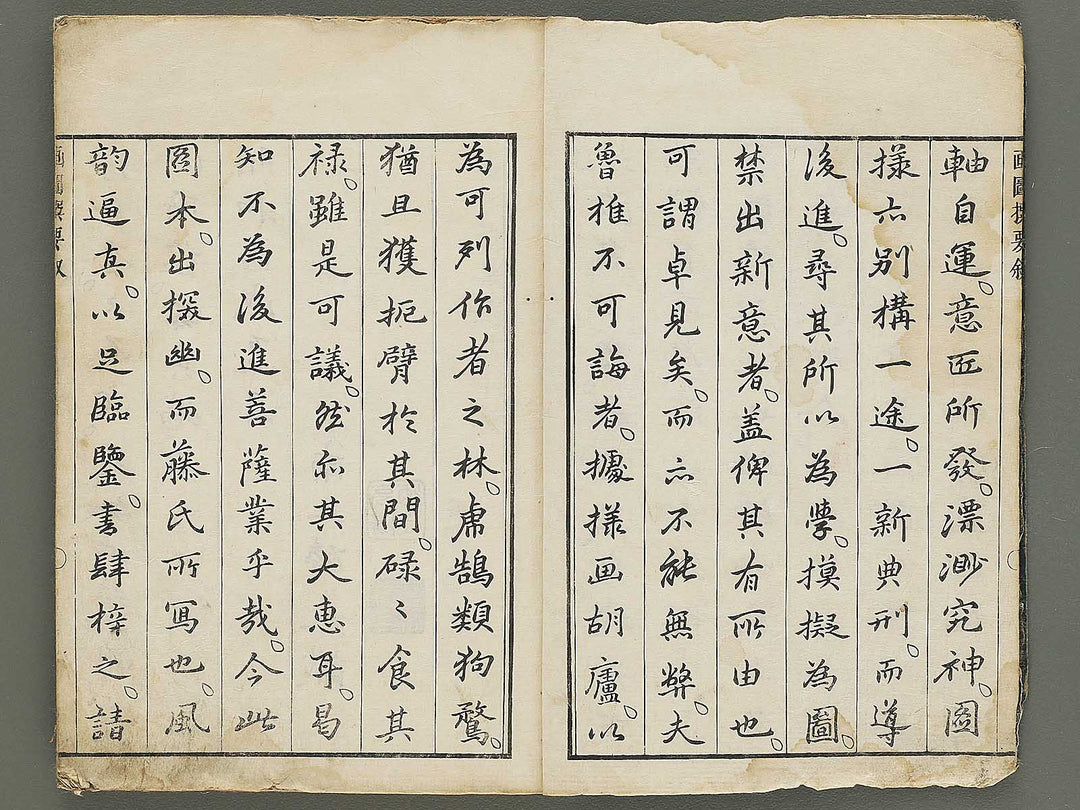 軸自運。意匠所發。漂渺究神。圖
様亦別構一途。一新典刑。而導
後進。尋其所以為學。摸擬為圖。
禁出新意者。盖俾其有所由也。
可謂卓見矣。而亦不能無弊。夫
魯推不可誨者。據様画胡廬。以
為可列作者之林。虜鵠類狗鶩。
猶且獲扼臂於其間。碌〻食其
禄。雖是可議。然亦其大惠耳。曷
知不為後進善薩業乎哉。今此
圖本。出探幽。而藤氏所寫也。風
韵逼真。以足臨鑒。書肆梓之。請